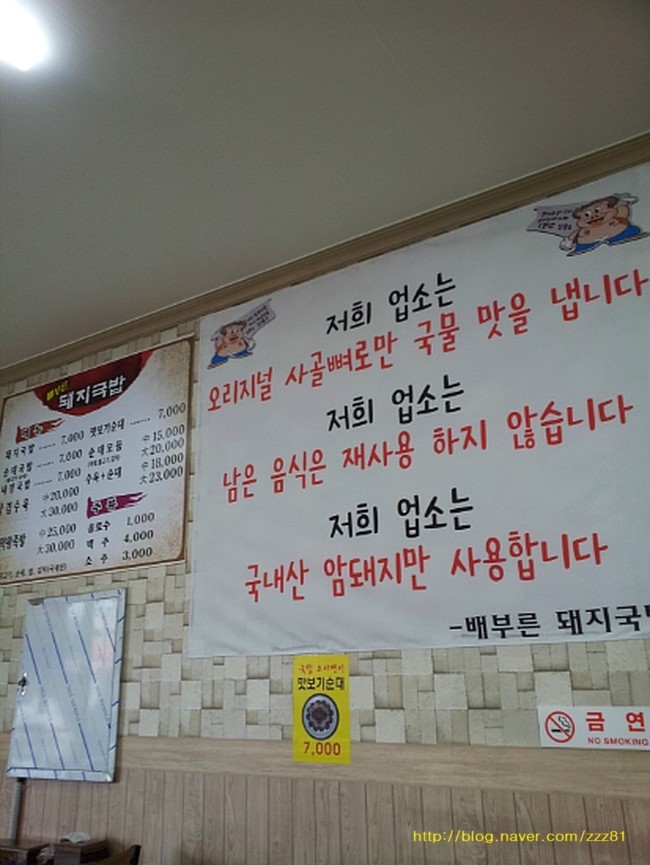 저희 업소는
오리지널 사골뼈로만 국물 맛을 냅니다
저희 업소는
남은 음식은 재사용 하지 않습니다
저희 업소는
국내산 암돼지만 사용합니다
-배부른 돼지국밥
배부른 돼지국밥
돼지국밥 ...... 7,000
순대국밥 ...... 7,000
내장국밥 ...... 7,000
中 20,000
大 30,000
中 25,000
大 30,000
맛보기순대 ...... 7,000
순대모듬 中 15,000
大 20,000
수육+순대 中 18,000
大 23,000
음료수 1,000
맥주 4,000
소주 3,000
맛보기순대
7,000
금연
NO SMOKING
http://blog.naver.com/zzz81